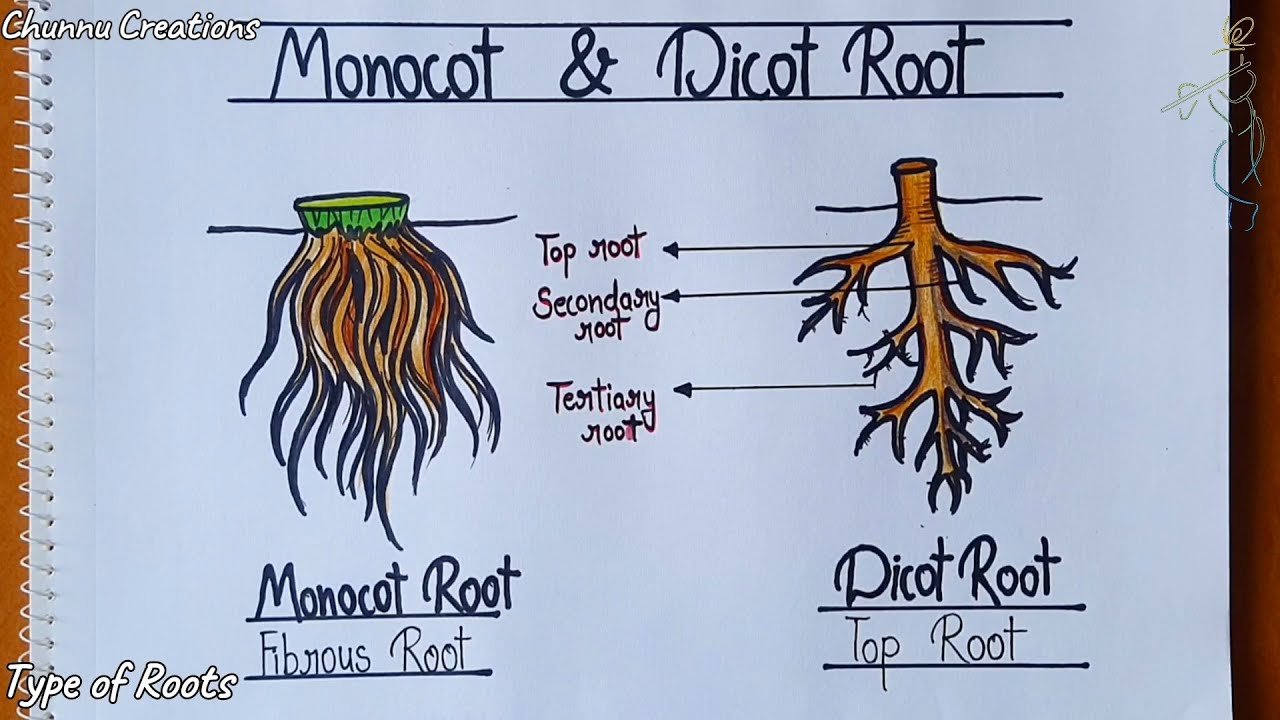 Chunnu Creations
Monocot & Dicot Root
Top root
Secondary
root
Tertiary
root
Monocot Root
Fibrous Root
Dicot Root
Top Root
Type of Roots